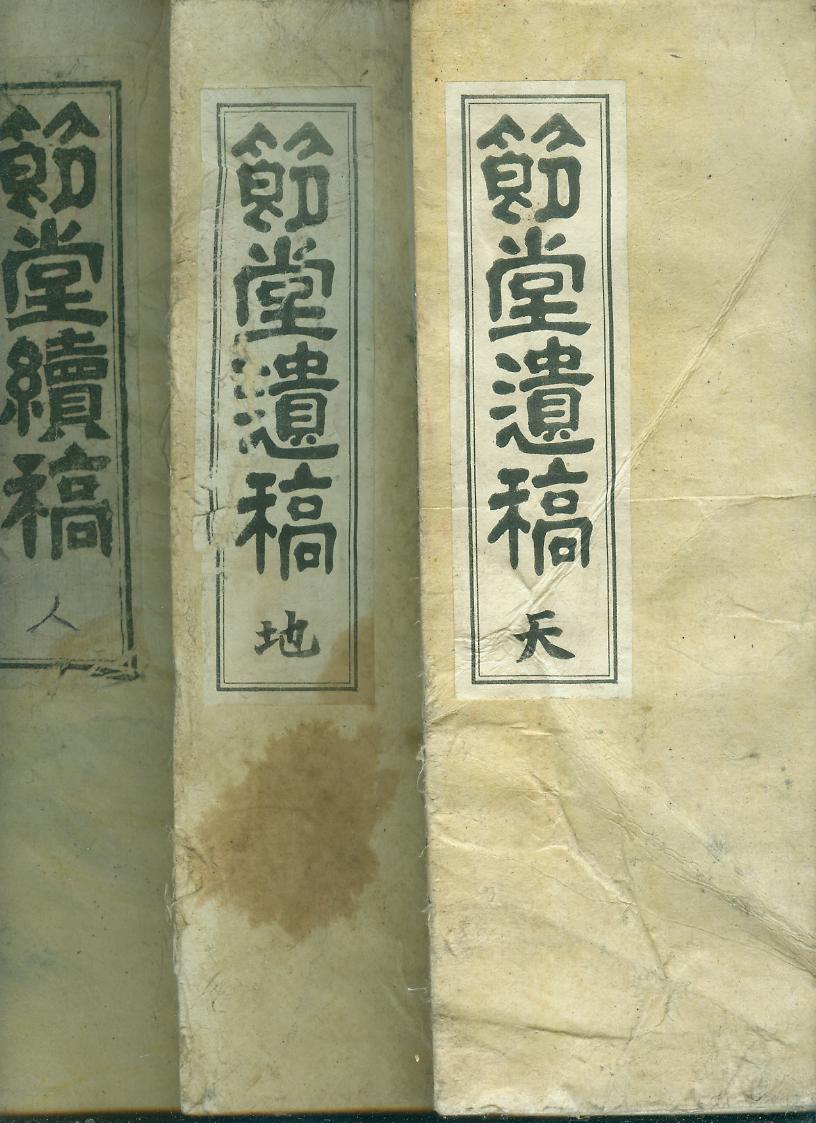 節堂遺稿
天
節堂遺稿
地
節堂續稿
人